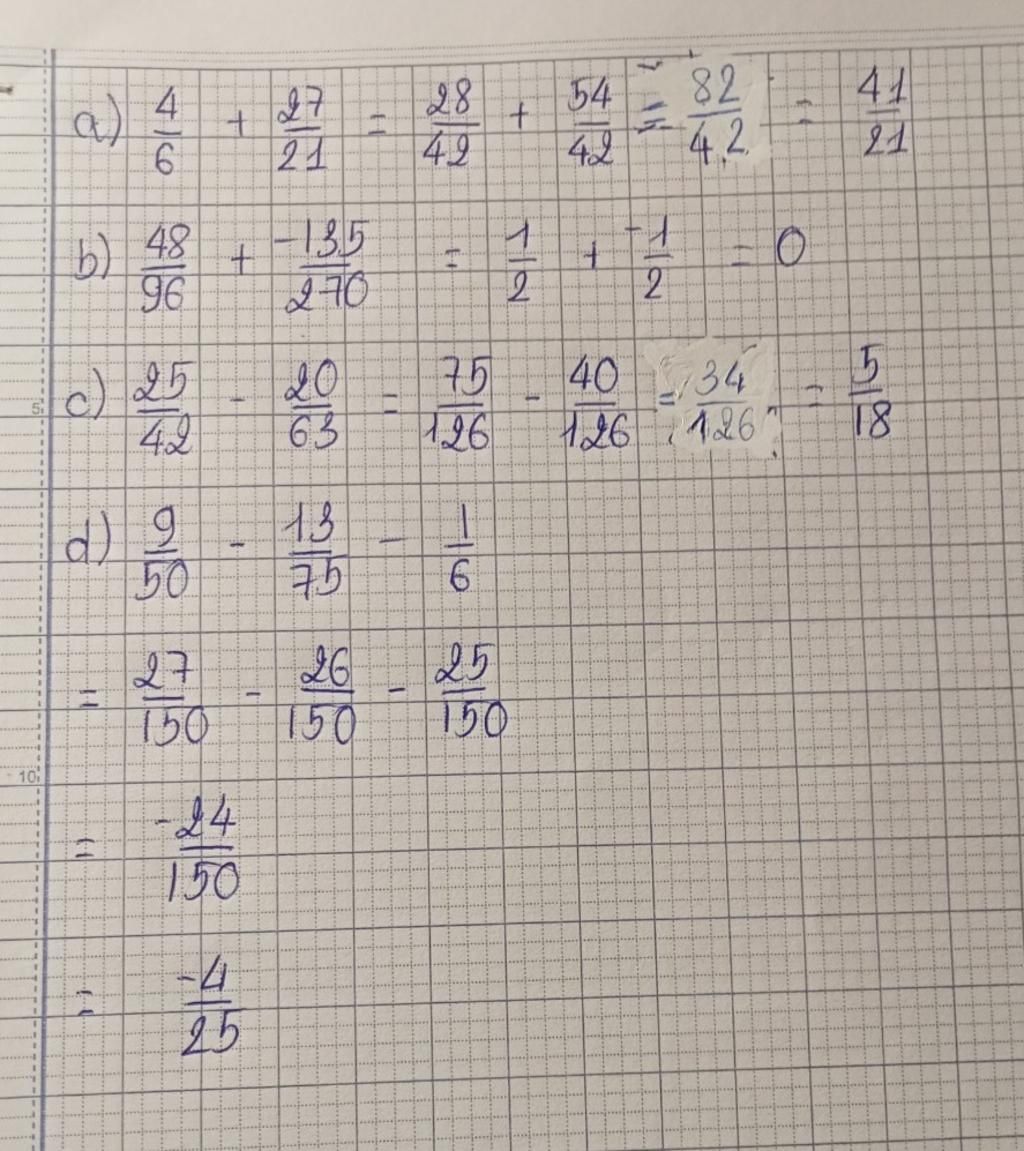 a) 4/6 + 27/21 = 28/42 + 54/42 = 82/42 = 41/21
b) 48/96 + -135/270 = 1/2 + -1/2 = 0
c) 25/42 - 20/63 = 75/126 - 40/126 = 34/126 = 5/18
5
d) 9/50 - 13/75 - 1/6
= 27/150 - 26/150 - 25/150
10
= -24/150
= -4/25